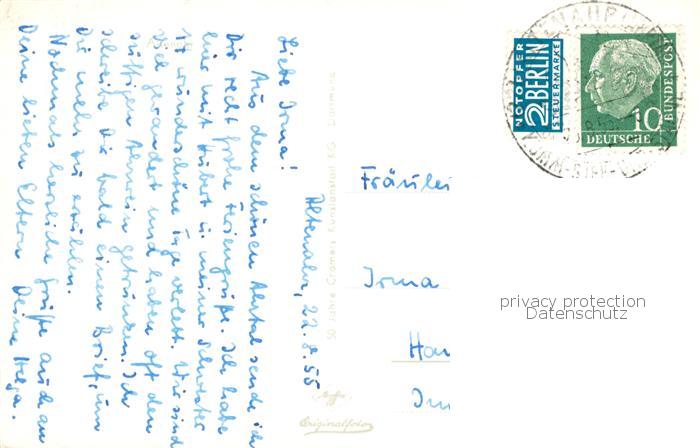 Altenahr, 22.8.55
Liebe Irma!
Aus dem schönen Ahrtal sende ich
Dir recht frohe Feriengrüße. Ich habe
hier mit Hubert u. meiner Schwester
14 wunderschöne Tage verlebt. Wir sind
viel gewandert und haben oft den
süffigen Ahrwein getrunken. Ich
schreibe Dir bald einen Brief, um
Dir mehr zu erzählen.
Nochmals herzliche Grüße auch an
Deine lieben Eltern Deine Helga.
50 Jahre Cramers Kunstanstalt KG Dortmund
Originalfoto
NOTOPFER
2 BERLIN
STEUERMARKE
10
DEUTSCHE
BUNDESPOST
Fräulei
Irma
Han
Im
privacy protection
Datenschutz